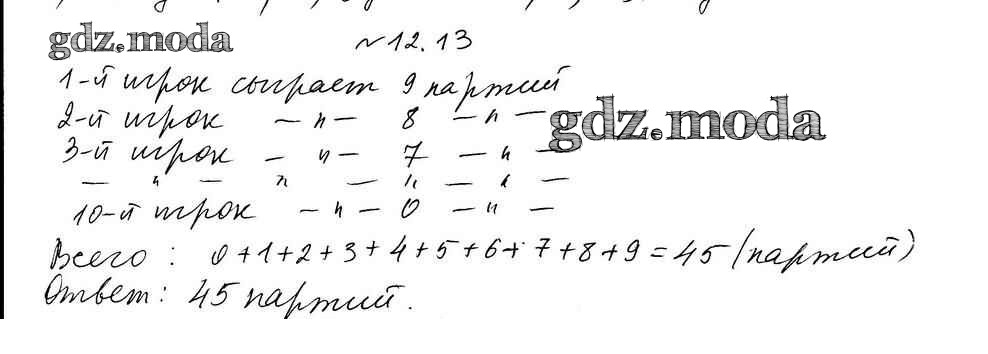 gdz.moda №12.13
1-й игрок сыграет 9 партий
2-й игрок —"— 8 —"—
gdz.moda
3-й игрок —"— 7 —"—
—"—"—"—"—
10-й игрок —"— 0 —"—
Всего: 0+1+2+3+4+5+6+7+8+9=45 (партий)
Ответ: 45 партий.